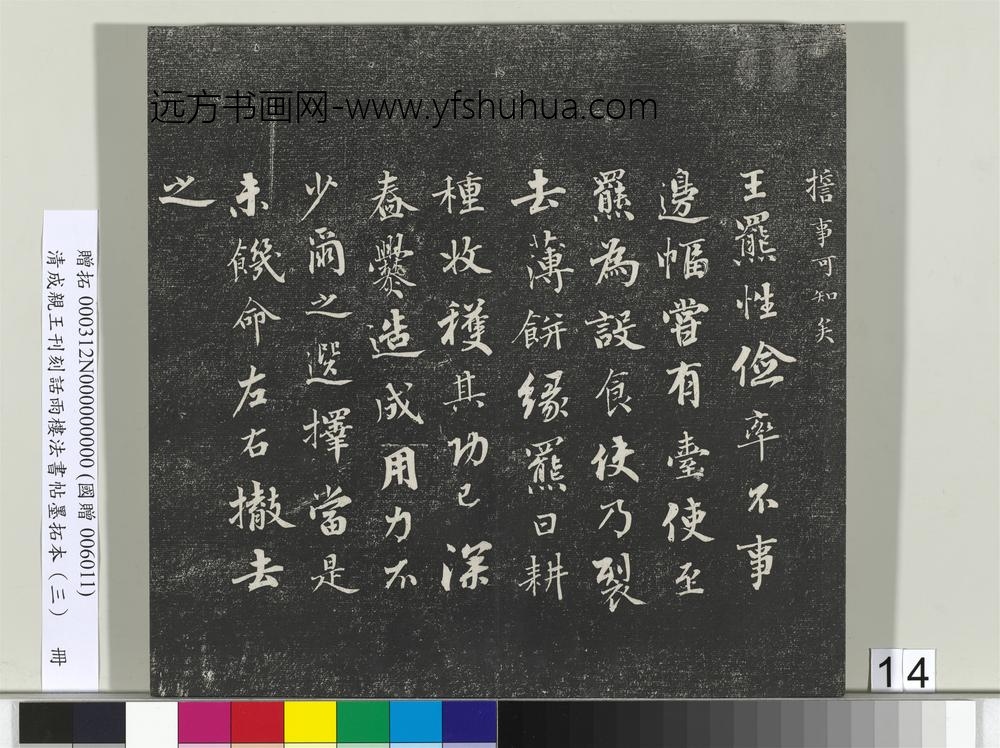 远方书画网-www.yfshuhua.com
擔事可知矣
王羆性儉率不事
邊幅嘗有臺使至
羆為設食使乃裂
去薄餅緣羆曰耕
種收穫其功已深
舂爨造成用力不
少爾之選擇當是
未饑命左右撤去
之
贈拓 000312N000000000(國贈 006011)
清成親王刊刻話雨樓法書帖墨拓本(三) 冊
14